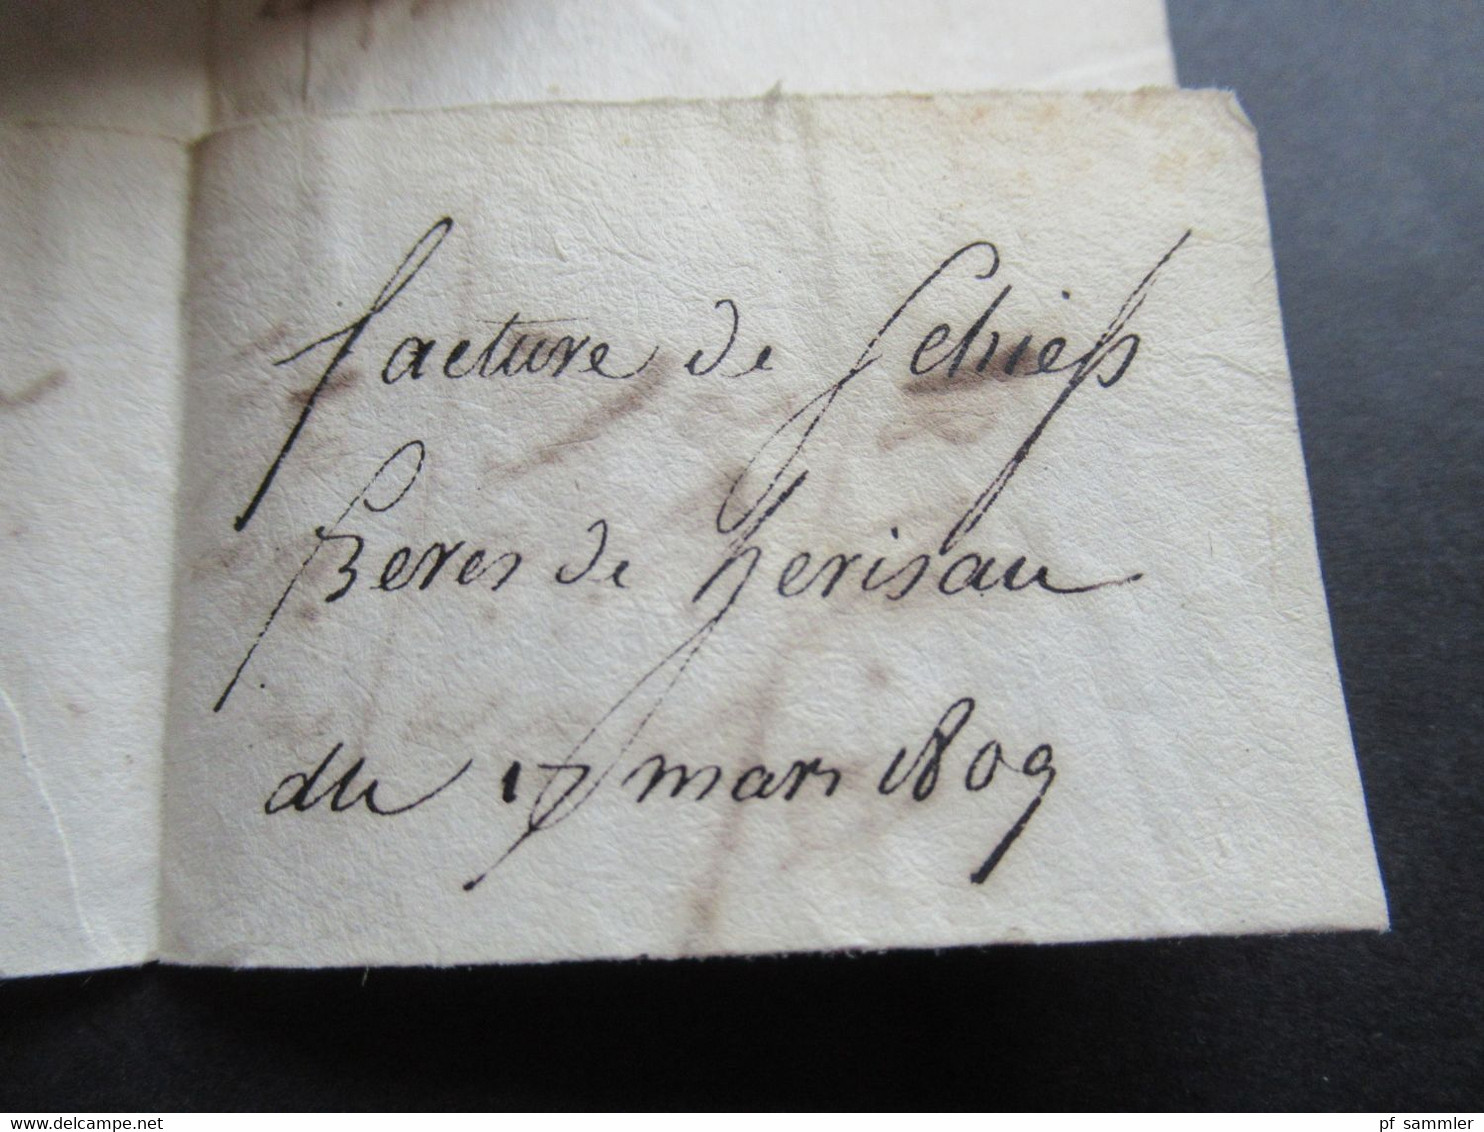 facture de Schieß
freres de herisau
du 17 mars 1809
www.delcampe.net
pf_sammler